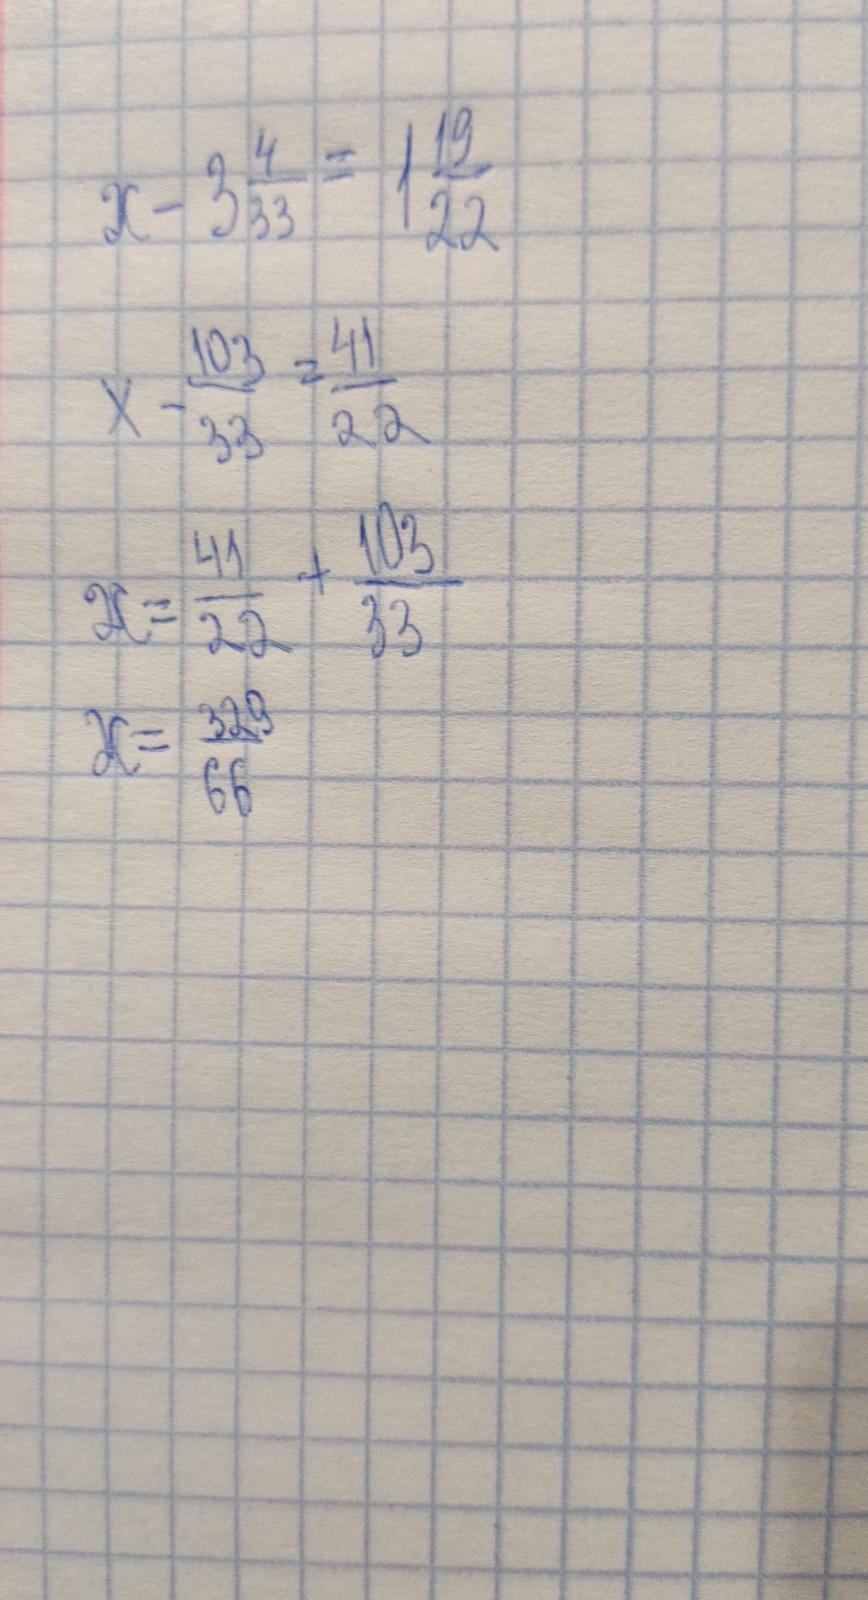 x - 3 4/33 = 1 19/22
x - 103/33 = 41/22
x = 41/22 + 103/33
x = 329/66